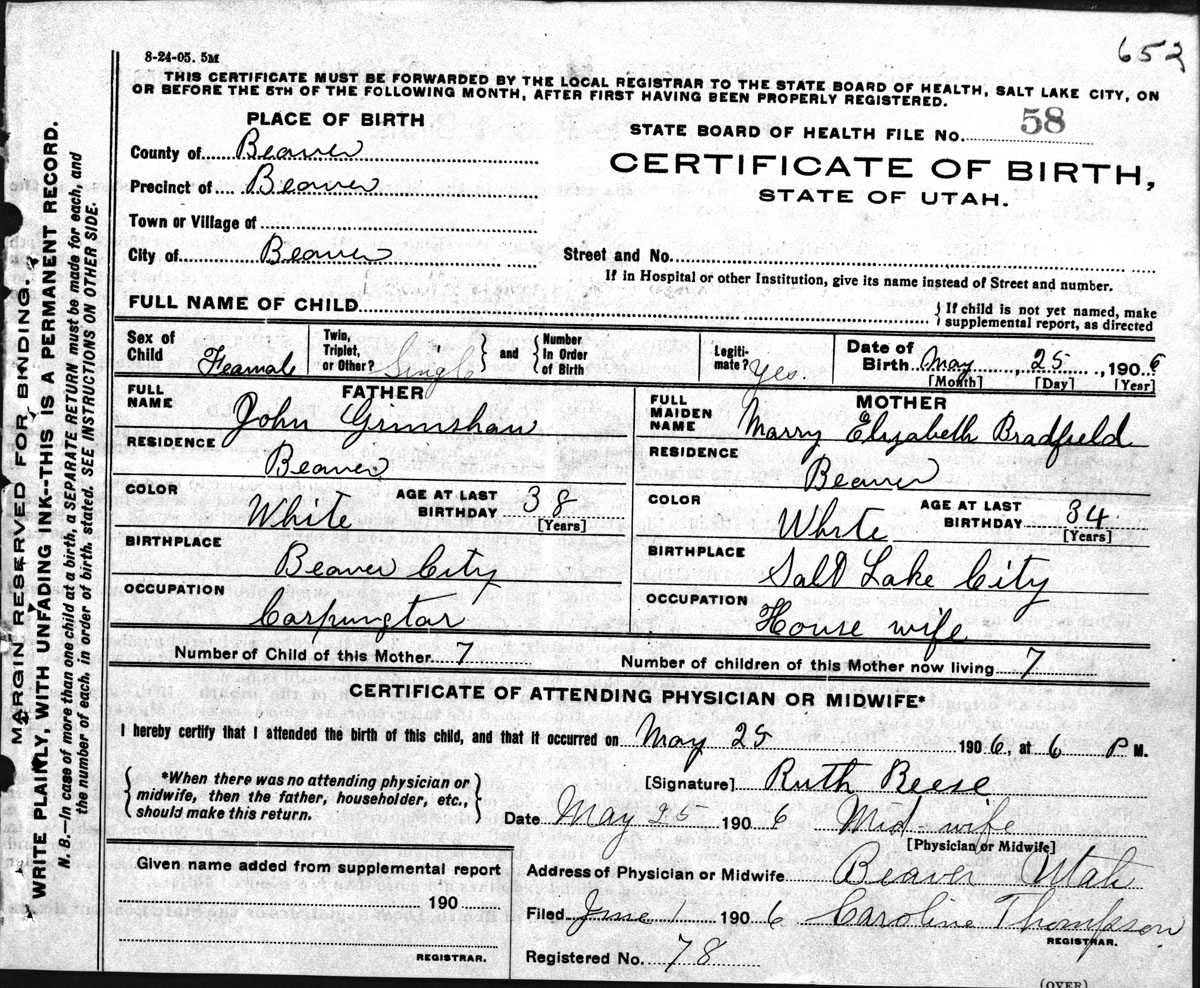 652
8-24-05. 5M
THIS CERTIFICATE MUST BE FORWARDED BY THE LOCAL REGISTRAR TO THE STATE BOARD OF HEALTH, SALT LAKE CITY, ON
OR BEFORE THE 5TH OF THE FOLLOWING MONTH, AFTER FIRST HAVING BEEN PROPERLY REGISTERED.
PLACE OF BIRTH
STATE BOARD OF HEALTH FILE No. 58
County of Beaver
CERTIFICATE OF BIRTH,
Precinct of Beaver
STATE OF UTAH.
Town or Village of
City of Beaver
Street and No.
If in Hospital or other Institution, give its name instead of Street and number.
FULL NAME OF CHILD
{ If child is not yet named, make
supplemental report, as directed
Sex of Child Feamale
Twin, Triplet, or Other? Single } and { Number In Order of Birth
Legiti-mate? Yes.
Date of Birth May 25, 1906
[Month] [Day] [Year]
FATHER
FULL NAME John Grimshaw
RESIDENCE Beaver
COLOR White
AGE AT LAST BIRTHDAY 38
[Years]
BIRTHPLACE Beaver City
OCCUPATION Carpungtar
MOTHER
FULL MAIDEN NAME Marry Elizabeth Bradfield
RESIDENCE Beaver
COLOR White
AGE AT LAST BIRTHDAY 34
[Years]
BIRTHPLACE Salt Lake City
OCCUPATION House wife
Number of Child of this Mother 7
Number of children of this Mother now living 7
CERTIFICATE OF ATTENDING PHYSICIAN OR MIDWIFE*
I hereby certify that I attended the birth of this child, and that it occurred on May 25 1906, at 6 P M.
{ *When there was no attending physician or
midwife, then the father, householder, etc.,
should make this return. }
[Signature] Ruth Reese
Date May 25 1906 Mid-wife
[Physician or Midwife]
Given name added from supplemental report
190
REGISTRAR.
Address of Physician or Midwife Beaver Utah
Filed June 1 1906 Caroline Thompson
REGISTRAR.
Registered No. 78
(OVER)
MARGIN RESERVED FOR BINDING.
WRITE PLAINLY, WITH UNFADING INK--THIS IS A PERMANENT RECORD.
N. B.—In case of more than one child at a birth, a SEPARATE RETURN must be made for each, and
the number of each, in order of birth, stated. SEE INSTRUCTIONS ON OTHER SIDE.